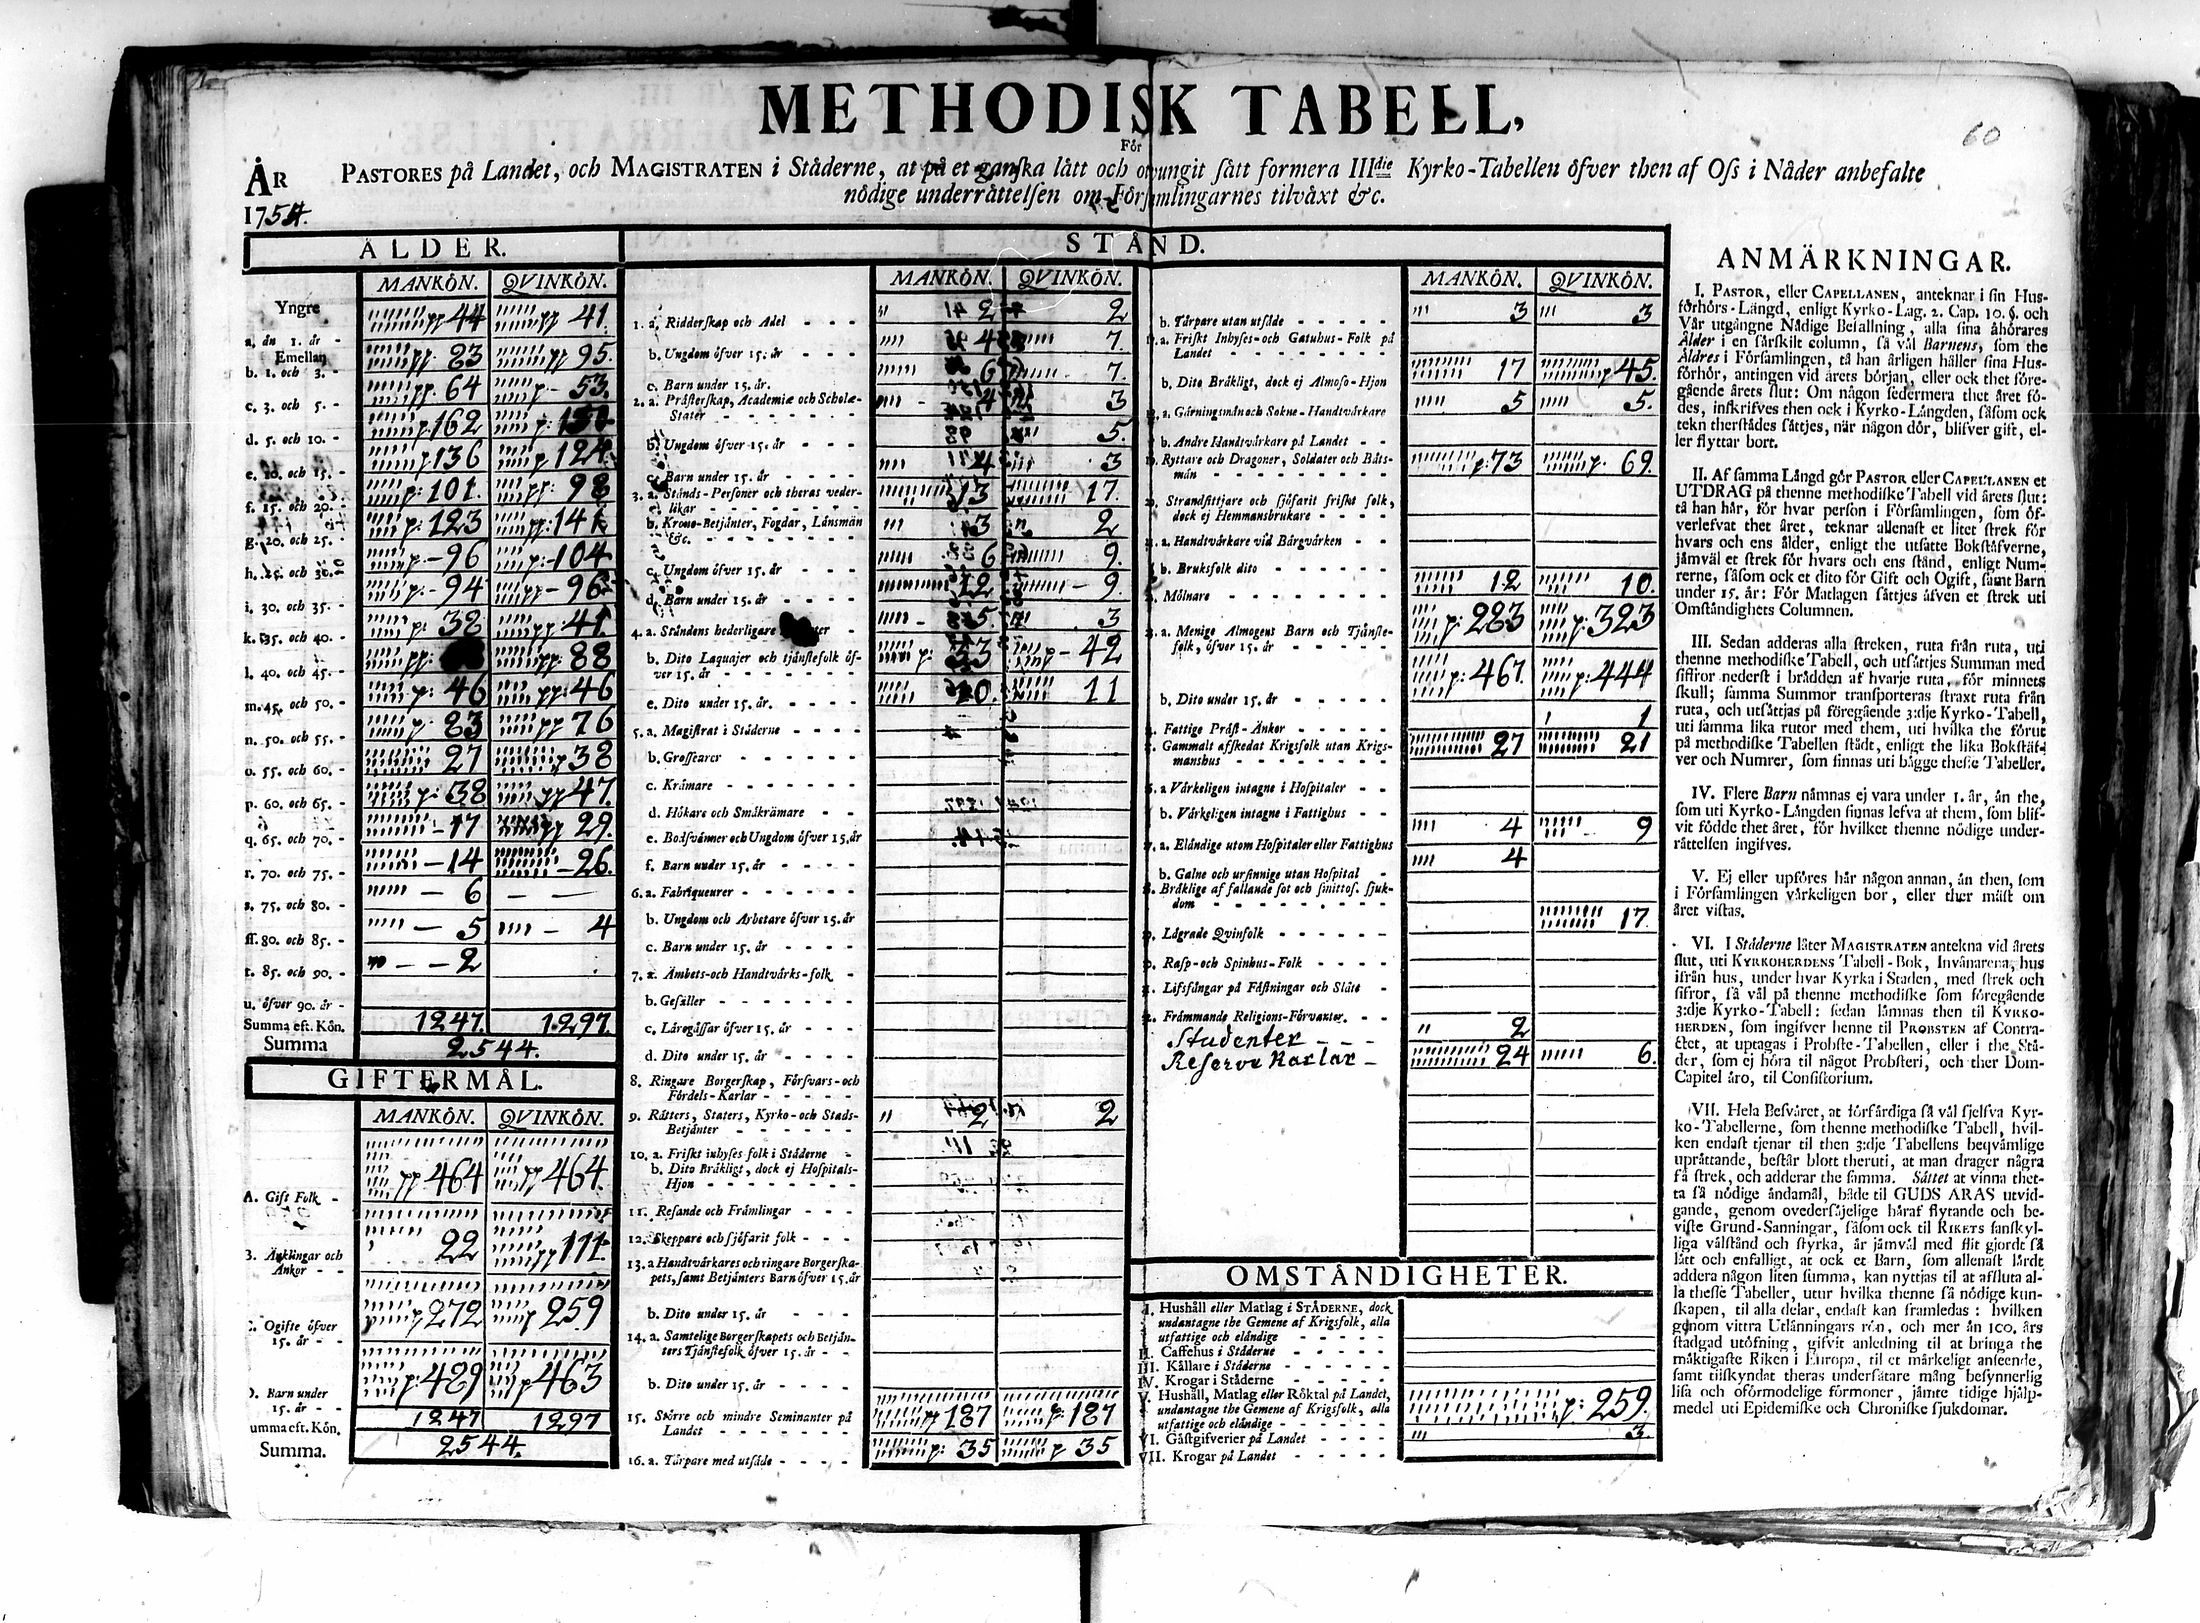 METHODISK TABELL,
60
För
ÅR PASTORES på Landet, och MAGISTRATEN i Städerne, at på et ganska lätt och otvungit sätt formera IIIdie Kyrko-Tabellen öfver then af Oss i Nåder anbefalte
nödige underrättelsen om Församlingarnes tilväxt &c.
1754.
ÅLDER.
MANKÖN. QVINKÖN.
Yngre
a. än 1. år - 44 41.
Emellan
b. 1. och 3. - 83 95.
c. 3. och 5. - 64 53.
d. 5. och 10. - 162
e. 10. och 15. - 136 124
f. 15. och 20. - 101. 98
g. 20. och 25. - 123 141
h. 25. och 30. - 96 104
i. 30. och 35. - 94 96
k. 35. och 40. - 38 41
l. 40. och 45. - 88
m. 45. och 50. - 46 46
n. 50. och 55. - 83 76
o. 55. och 60. - 27 38
p. 60. och 65. - 38 47.
q. 65. och 70. - 17 29.
r. 70. och 75. - 14 26.
s. 75. och 80. - 6 — —
ff. 80. och 85. - 5 4
t. 85. och 90. - 2
u. öfver 90. år -
Summa eft. Kön. 1247. 1297.
Summa 2544.
GIFTERMÅL.
MANKÖN. QVINKÖN.
A. Gift Folk - 464 464.
B. Änklingar och
Änkor - - 22 111.
Ogifte öfver
15. år - - 272 259
Barn under
15. år - - 489 463
umma eft. Kön. 1247 1297
Summa. 2544.
STÅND.
MANKÖN. QVINKÖN.
1. a. Ridderskap och Adel - - - 2 2
b. Ungdom öfver 15. år - - - 4 7
c. Barn under 15. år. 6 7.
2. a. Prästerskap, Academiæ och Scholæ-
Stater - - - - - 4 3
b. Ungdom öfver 15. år - - - 5.
c. Barn under 15. år - - - - 4 3
3. a. Stånds-Personer och theras veder-
likar - - - - - 13 17.
b. Krono-Betjänter, Fogdar, Länsmän
&c. - - - - - - 3 2
c. Ungdom öfver 15. år - - - 6 9.
d. Barn under 15. år - - - - 12 9.
4. a. Ståndens hederligare - 5 3
b. Dito Laquajer och tjänstefolk öf-
ver 15. år - - - - - - 42
e. Dito under 15. år. - - - - 10. 11
5. a. Magistrat i Städerne - - - -
b. Grosseurer - - - - - -
c. Krämare - - - - - -
d. Hökare och Småkrämare - -
e. Bodsvänner och Ungdom öfver 15. år
f. Barn under 15. år - - - -
6. a. Fabriqueurer - - - - - -
b. Ungdom och Arbetare öfver 15. år
c. Barn under 15. år - - - -
7. a. Ämbets-och Handtvärks-folk -
b. Gesäller - - - - - - -
c. Läregåssar öfver 15. år - - -
d. Dito under 15. år - - - -
8. Ringare Borgerskap, Försvars-och
Fördels-Karlar - - - - -
9. Rätters, Staters, Kyrko-och Stads-
Betjänter - - - - - - 2 2
10. a. Friskt inhyses folk i Städerne -
b. Dito Bräkligt, dock ej Hospitals-
Hjon - - - - - - - -
11. Resande och Främlingar - - -
12. Skeppare och sjöfarit folk - - -
13. a Handtvärkares och ringare Borgerska-
pets, samt Betjänters Barn öfver 15. år
b. Dito under 15. år - - - -
14. a. Samtelige Borgerskapets och Betjän-
ters Tjänstefolk öfver 15. år - -
b. Dito under 15. år - - - -
15. Större och mindre Seminanter på
Landet - - - - - - 187 187
16. a. Tårpare med utsäde - - - - 35 35
MANKÖN. QVINKÖN.
b. Tårpare utan utsäde - - - - - 3 3
a. Friskt Inhyses-och Gatuhus-Folk på
Landet - - - - - - - - 17 45.
b. Dito Bräkligt, dock ej Almoso-Hjon 5 5.
a. Gärningsmän och Sokne-Handtvärkare
b. Andre Handtvärkare på Landet - -
Ryttare och Dragoner, Soldater och Båts-
män - - - - - - - - 73 69.
Strandsittjare och sjöfarit friskt folk,
dock ej Hemmansbrukare - - - -
a. Handtvärkare vid Bärgvärken - -
b. Bruksfolk dito - - - - - -
Mölnare - - - - - - - - 12 10.
a. Menige Almogens Barn och Tjänste-
folk, öfver 15. år - - - - - 283 323
b. Dito under 15. år - - - - - 467 444
Fattige Präst-Änkor - - - - - 1
Gammalt afskedat Krigsfolk utan Krigs-
manshus - - - - - - - 27 21
a Värkeligen intagne i Hospitaler - -
b. Värkeligen intagne i Fattighus - -
a. Eländige utom Hospitaler eller Fattighus 4 9
b. Galne och ursinnige utan Hospital - 4
Bräklige af fallande sot och smittos. sjuk-
dom - - - - - - - -
Lägrade Qvinfolk - - - - - 17.
Rasp-och Spinhus-Folk - - - -
Lifsfångar på Fästningar och Slått -
Främmande Religions-Förvanter. - -
Studenter - - - 2
Reserve Karlar - 24 6.
OMSTÄNDIGHETER.
I. Hushåll eller Matlag i STÄDERNE, dock
undantagne the Gemene af Krigsfolk, alla
utfattige och eländige - - - - -
II. Caffehus i Städerne - - - - -
III. Källare i Städerne - - - - - -
IV. Krogar i Städerne - - - - -
V. Hushåll, Matlag eller Röktal på Landet,
undantagne the Gemene af Krigsfolk, alla
utfattige och eländige - - - - - 259.
VI. Gästgifverier på Landet - - - - 3
VII. Krogar på Landet - - - - -
ANMÄRKNINGAR.
I. PASTOR, eller CAPELLANEN, anteknar i sin Hus-
förhörs-Längd, enligt Kyrko-Lag. 2. Cap. 10. §. och
Vår utgångne Nådige Befallning, alla sina åhörares
Ålder i en särskilt column, så väl Barnens, som the
Äldres i Församlingen, tå han årligen håller sina Hus-
förhör, antingen vid årets början, eller ock thet före-
gående årets slut: Om någon sedermera thet året fö-
des, inskrifves then ock i Kyrko-Längden, såsom ock
tekn therstädes sättjes, när någon dör, blifver gift, el-
ler flyttar bort.
II. Af samma Längd gör PASTOR eller CAPELLANEN et
UTDRAG på thenne methodiske Tabell vid årets slut:
tå han här, för hvar person i Församlingen, som öf-
verlefvat thet året, teknar allenast et litet strek för
hvars och ens ålder, enligt the utsatte Bokstäfverne,
jämväl et strek för hvars och ens stånd, enligt Num-
rerne, såsom ock et dito för Gift och Ogift, samt Barn
under 15. år: För Matlagen sättjes äfven et strek uti
Omständighets Columnen.
III. Sedan adderas alla streken, ruta från ruta, uti
thenne methodiske Tabell, och utsättjes Summan med
siffror nederst i brädden af hvarje ruta, för minnets
skull; samma Summor transporteras straxt ruta från
ruta, och utsättjas på föregående 3:dje Kyrko-Tabell,
uti samma lika rutor med them, uti hvilka the förut
på methodiske Tabellen städt, enligt the lika Bokstäf-
ver och Numrer, som finnas uti bägge thesse Tabeller.
IV. Flere Barn nämnas ej vara under 1. år, än the,
som uti Kyrko-Längden finnas lefva af them, som blif-
vit födde thet året, för hvilket thenne nödige under-
rättelsen ingifves.
V. Ej eller upföres här någon annan, än then, som
i Församlingen värkeligen bor, eller ther mäst om
året vistas.
VI. I Städerne låter MAGISTRATEN antekna vid årets
slut, uti KYRKOHERDENS Tabell-Bok, Invånarena, hus
ifrån hus, under hvar Kyrka i Staden, med strek och
sifror, så väl på thenne methodiske som föregående
3:dje Kyrko-Tabell: sedan lämnas then til KYRKO-
HERDEN, som ingifver henne til PROBSTEN af Contra-
ctet, at uptagas i Probste-Tabellen, eller i the Stä-
der, som ej höra til något Probsteri, och ther Dom-
Capitel äro, til Consistorium.
VII. Hela Besväret, at förfärdiga så väl sjelfva Kyr-
ko-Tabellerne, som thenne methodiske Tabell, hvil-
ken endast tjenar til then 3:dje Tabellens beqvämlige
uprättande, består blott theruti, at man drager några
få strek, och adderar the samma. Sättet at vinna thet-
ta så nödige ändamål, både til GUDS ÄRAS utvid-
gande, genom ovedersäjelige häraf flytande och be-
viste Grund-Sanningar, såsom ock til RIKETS sanskyl-
liga välstånd och styrka, är jämväl med flit gjordt så
lätt och enfalligt, at ock et Barn, som allenast lärdt
addera någon liten summa, kan nyttjas til at affluta al-
la thesse Tabeller, utur hvilka thenne så nödige kun-
skapen, til alla delar, endast kan framledas: hvilken
genom vittra Utlänningars rön, och mer än 100. års
stadgad utöfning, gifvit anledning til at bringa the
mäktigaste Riken i Europa, til et märkeligt anseende,
samt tilskyndat theras undersåtare mång besynnerlig
lisa och oförmodelige förmoner, jämte tidige hjälp-
medel uti Epidemiske och Chroniske sjukdomar.